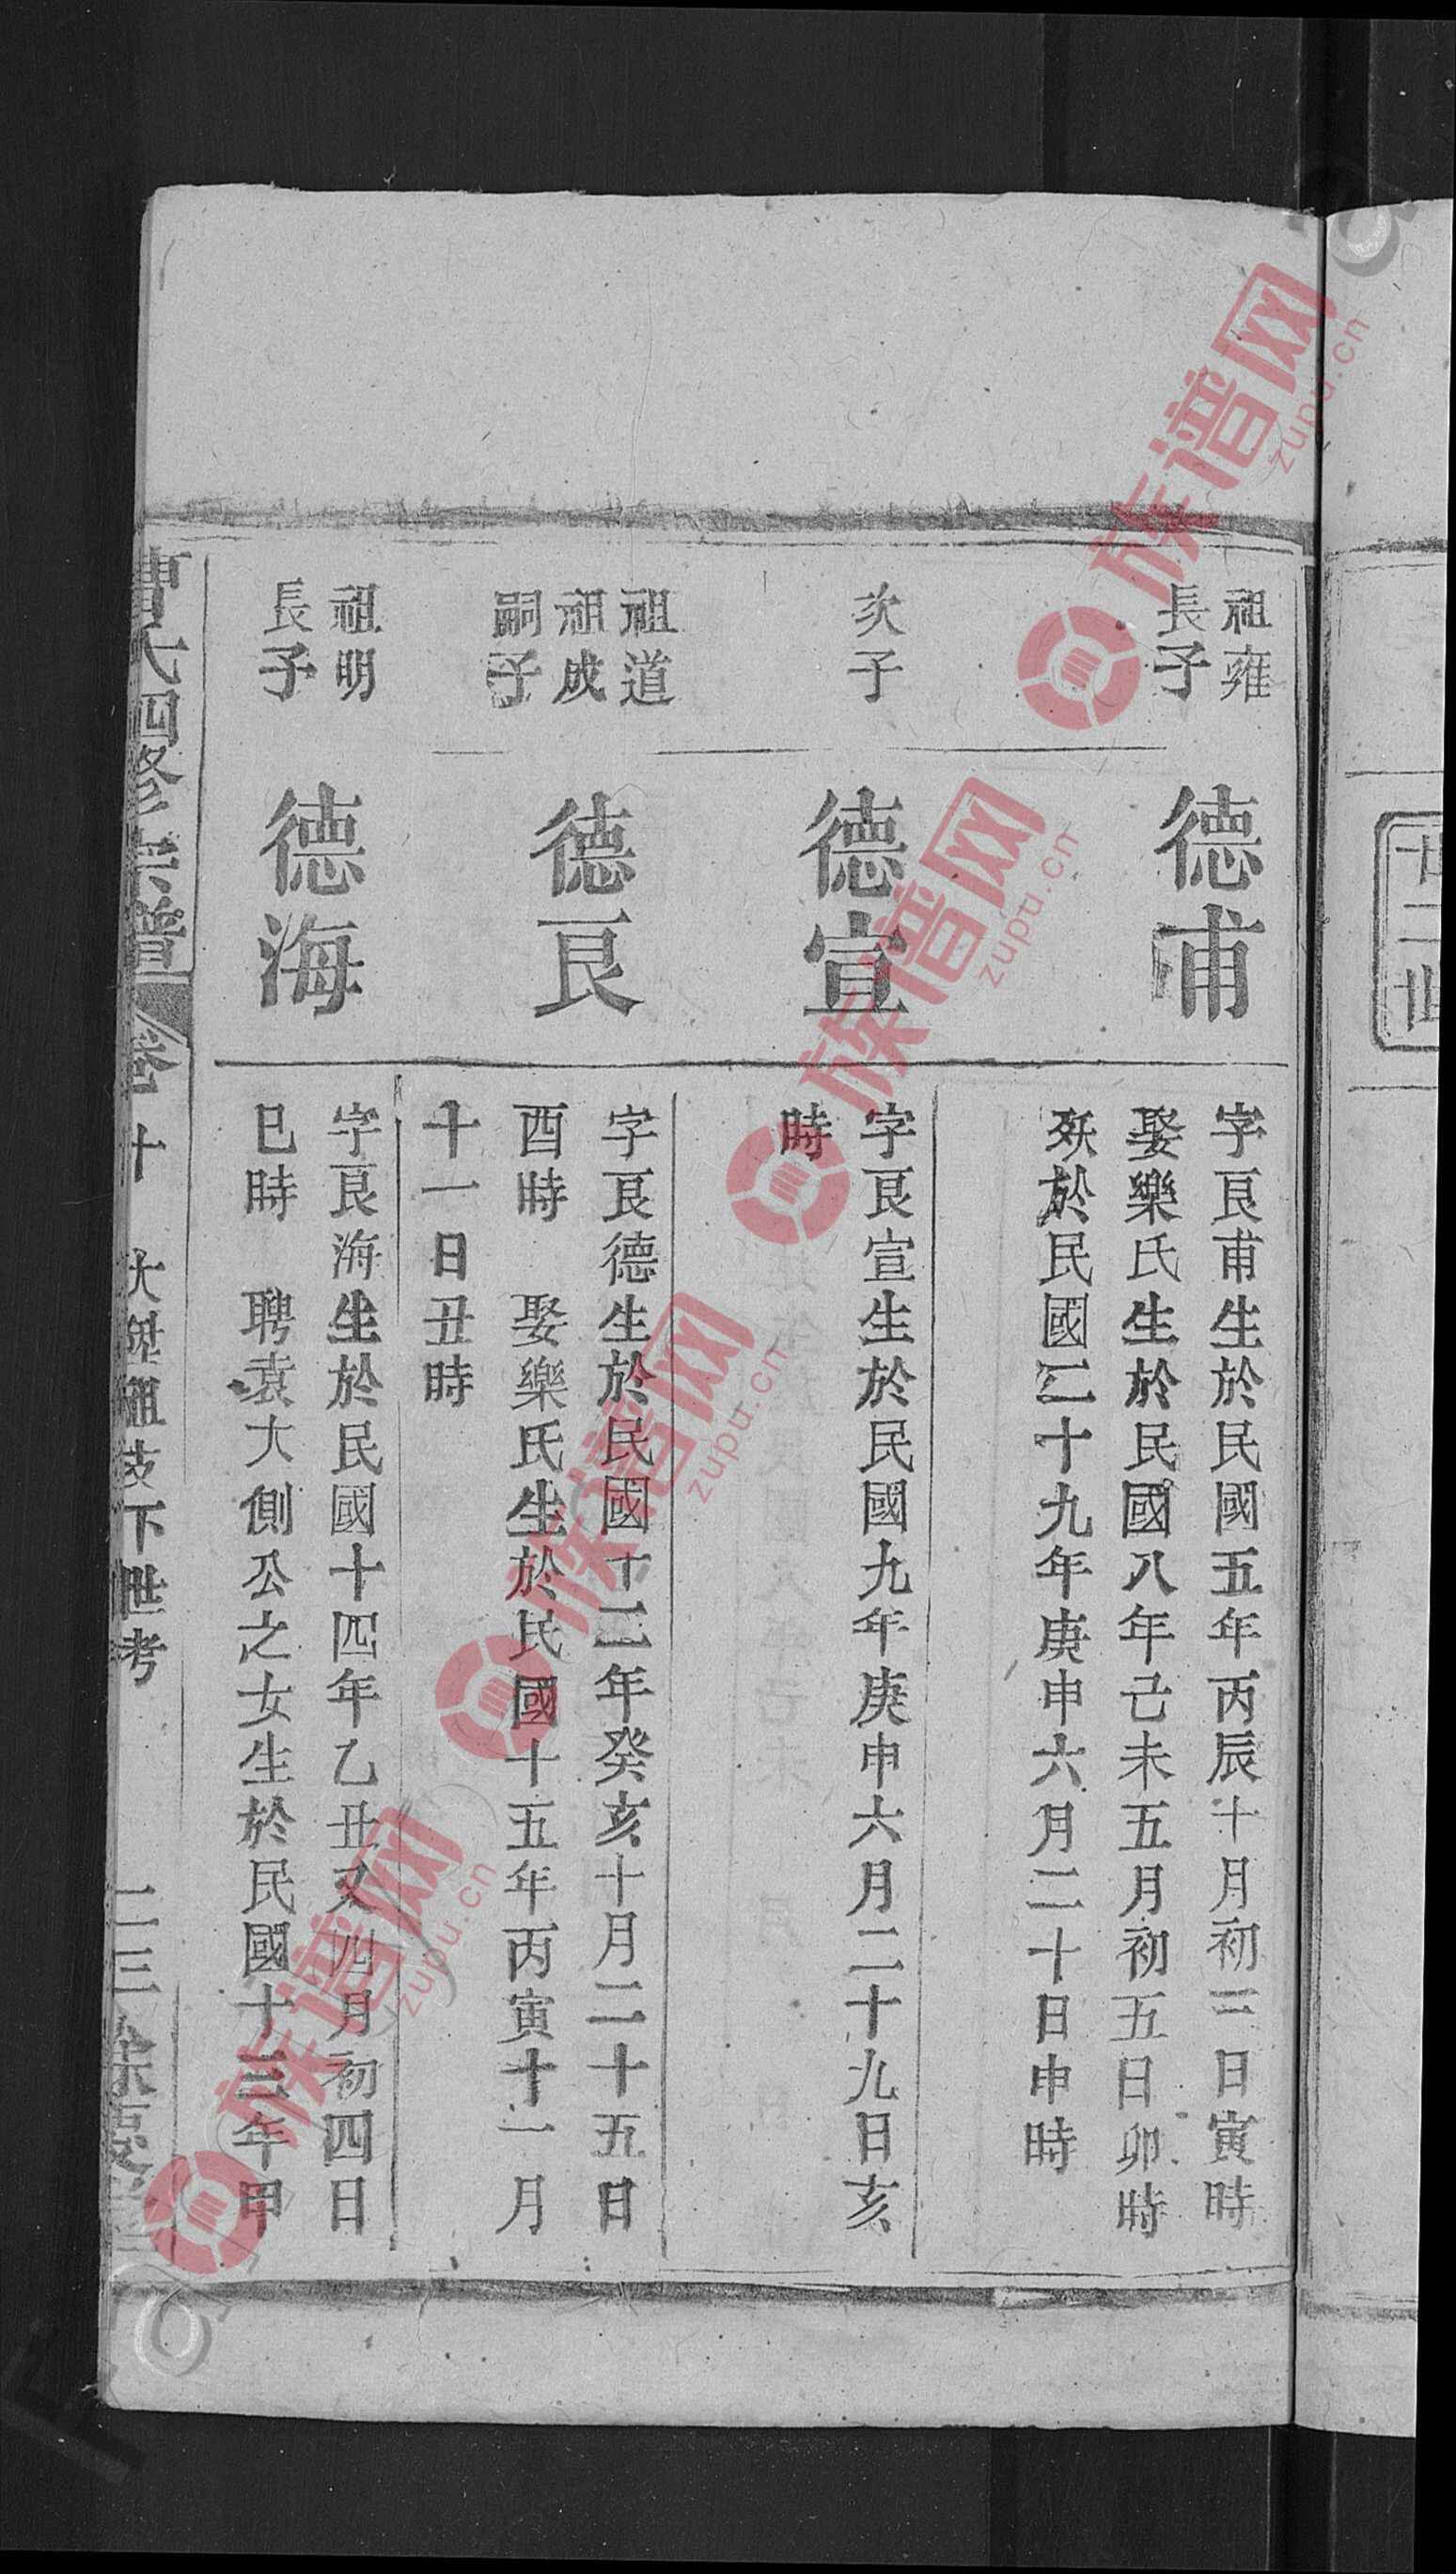 廿二世
祖雍
長子
德甫
字良甫生於民國五年丙辰十月初三日寅時
娶樂氏生於民國八年己未五月初五日卯時
殀於民國二十九年庚申六月二十日申時
次子
德宣
字良宣生於民國九年庚申六月二十九日亥
時
祖道
祖成
嗣子
德良
字良德生於民國十二年癸亥十月二十五日
酉時 娶樂氏生於民國十五年丙寅十一月
十一日丑時
祖明
長子
德海
字良海生於民國十四年乙丑又四月初四日
巳時 聘袁大側公之女生於民國十三年甲
氏四修宗譜 卷十 大 祖支下世考 二三
族谱网
zupu.cn
族谱网
zupu.cn
族谱网
zupu.cn
族谱网
zupu.cn